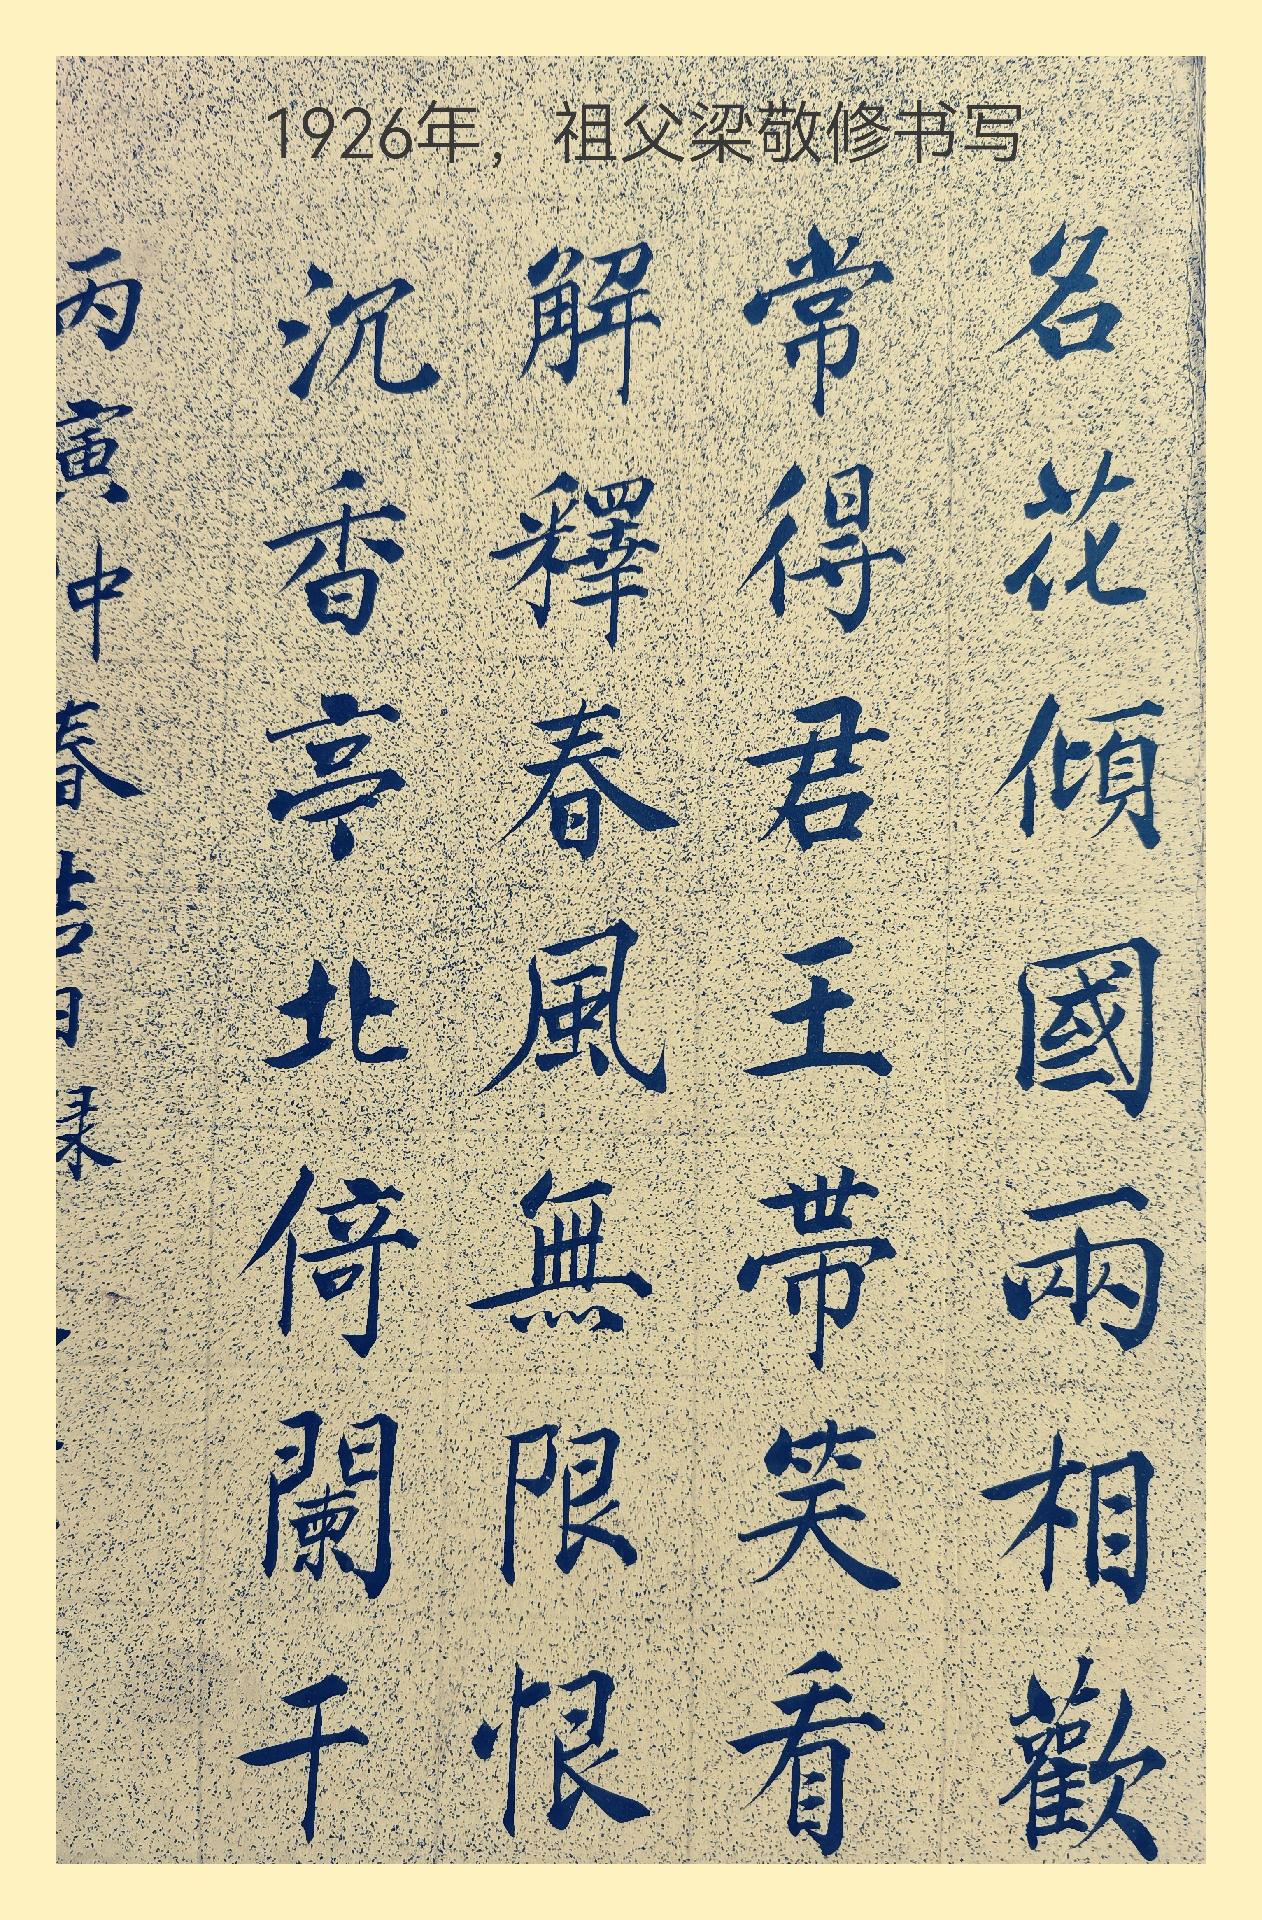 1926年，祖父梁敬修书写
名花傾國兩相歡
常得君王帶笑看
解釋春風無限恨
沉香亭北倚闌干
丙寅仲春吉日録